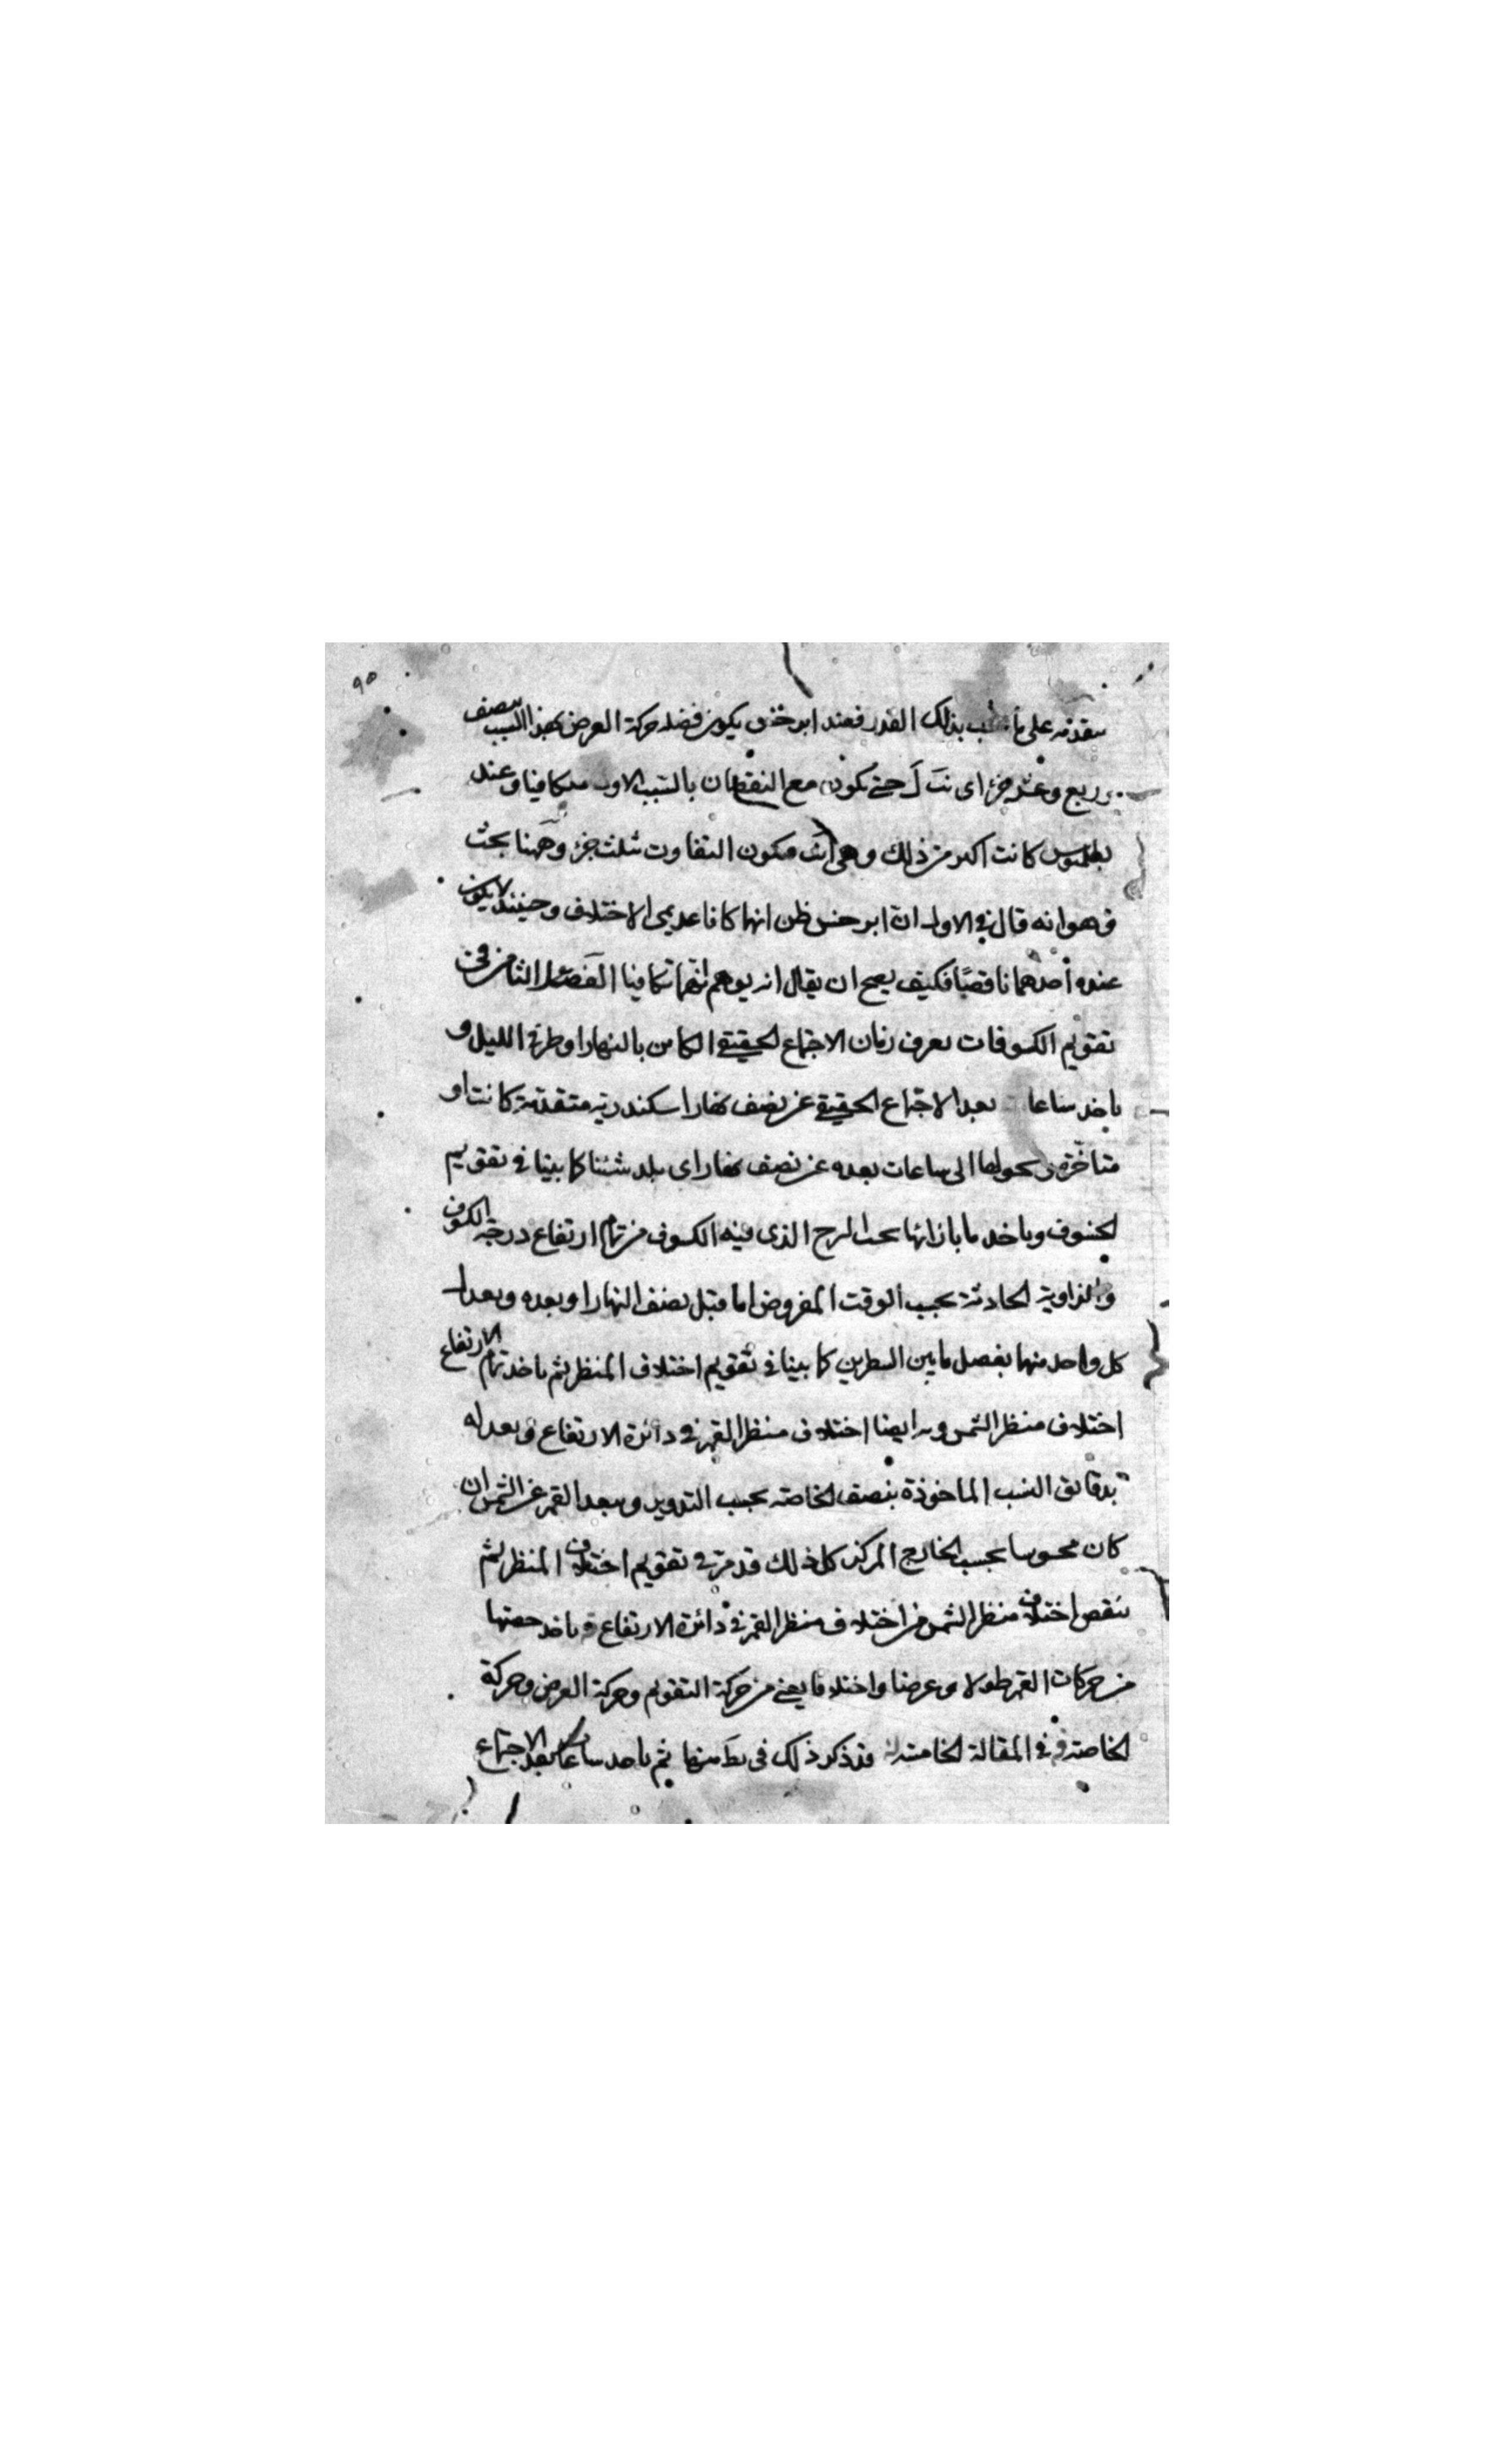 ٩٥
متقدمه على ما بذلك القدر فعند ابرخس يكون فضله حركة العرض بهذا السبب نصف
وربع وعشر جزء اى نَب لَ حتى تكون مع النقصان بالسبب الاول متكافيا وعند
بطلميوس كانت اكبر من ذلك وهى فيكون التفاوت ثلث جزء وههنا بحث
وهو انه قال فى الاول ان ابرخس ظن انهما كانا عديمى الاختلاف وحينئذ لا يكون
عنده احدهما ناقصا فكيف يصح ان يقال انه يوهم انهما تكافيا الفصل الثامن فى
تقويم الكسوفات نعرف زمان الاجتماع الحقيقى الكائن بالنهار او طرفى الليل و
ناخذ ساعات بعد الاجتماع الحقيقى عن نصف نهار اسكندرية متقدمة كانت او
متاخرة ونحولها الى ساعات بعده عن نصف نهار اى بلد شئنا كما بينا فى تقويم
الخسوف وناخذ ما بازائها تحت البرج الذى فيه الكسوف من تمام ارتفاع درجة الكسوف
والزاوية الحادثة بحسب الوقت المفروض اما قبل نصف النهار او بعده ونعدل
كل واحد منهما بفصل ما بين السطرين كما بينا فى تقويم اختلاف المنظر ثم ناخذ تمام الارتفاع
اختلاف منظر الشمس وبه ايضا اختلاف منظر القمر فى دائرة الارتفاع ونعدله
بدقائق النسب الماخوذة بنصف الخاصة بحسب التدوير وببعد القمر عن الشمس ان
كان محسوسا بحسب الخارج المركز كل ذلك قد مر فى تقويم اختلاف المنظر ثم
ننقص اختلاف منظر الشمس من اختلاف منظر القمر فى دائرة الارتفاع وناخذ حصتها
من حركات القمر طولا وعرضا واختلافا يعنى من حركة التقويم وحركة العرض وحركة
الخاصة فى المقالة الخامسة قد ذكر ذلك فى يط منها ثم ناخذ ساعات بعد الاجتماع